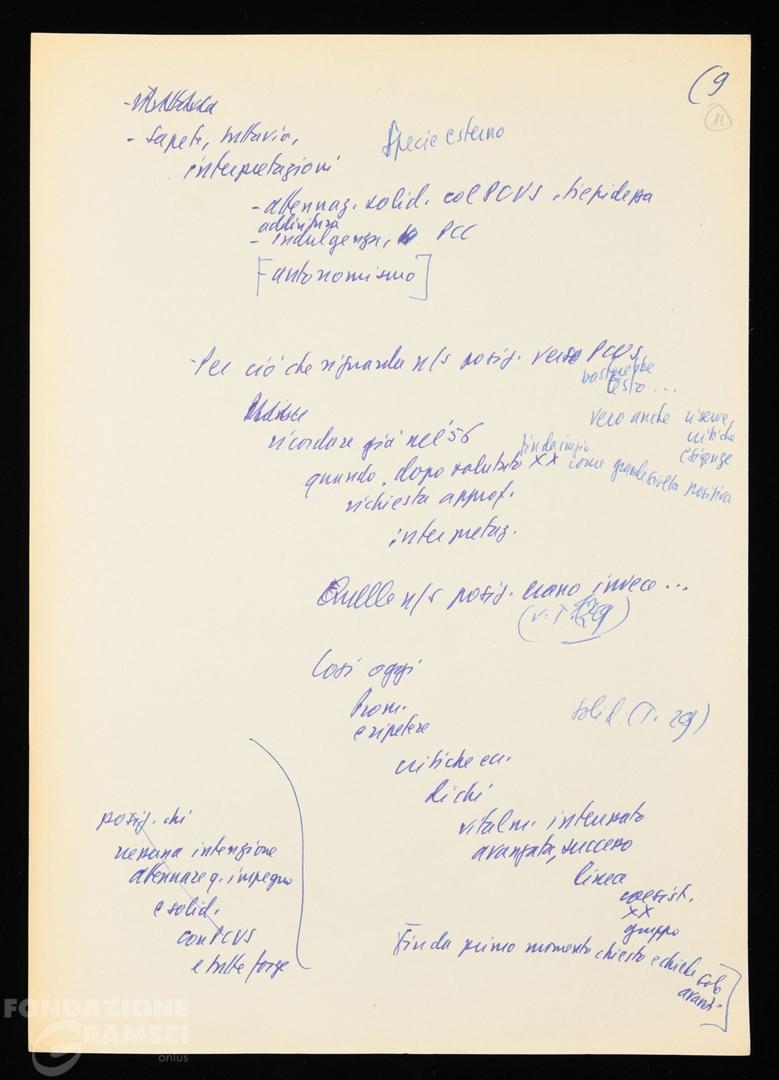 (9
12
- sapete, tuttavia,
interpretazioni
Specie esterno
- attenuaz. solid. col PCUS, tiepidezza
addirittura
- indulgenza, PCC
[autonomismo]
- Per ciò che riguarda n/s posiz. verso PCUS
basterebbe
testo ...
vero anche riserve,
critiche
esigenze
ricordare già nel '56
quando, dopo valutato XX come grande svolta positiva
fin da inizio
richiesta approf.
interpretaz.
Quelle n/s posiz. erano invece ...
(v. T. 129)
Così oggi
Prom.
e ripetere
solid. (T. 29)
critiche ecc.
di chi
vitalm. interessato
avanzata, successo
linea
coesist.
XX
gruppo
posiz. chi
nessuna intenzione
attenuare q. impegno
e solid.
con PCUS
e tutte forze
Fin da primo momento chiesto e chiede solo
avanz.]
FONDAZIONE
GRAMSCI
onlus